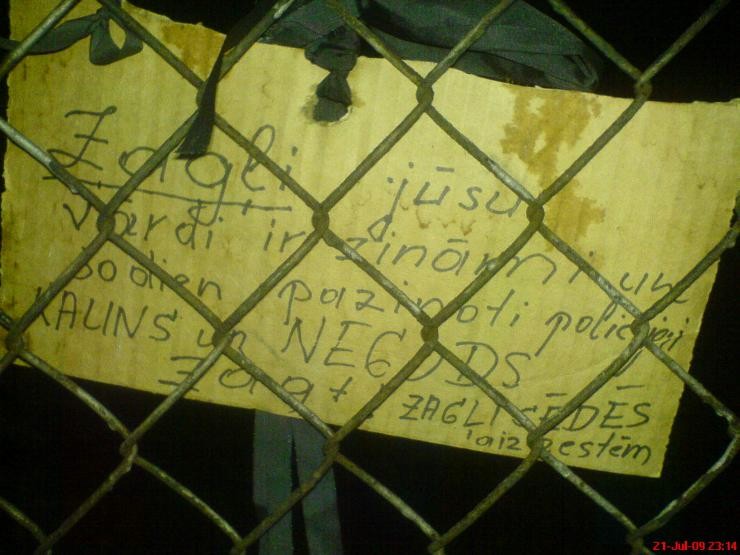 Zagļi jūsu
vārdi ir zināmi un
šodien paziņoti policijai
KAUNS un NEGODS
zagt! ZAGĻI SĒDĒS
aiz restēm
21-Jul-09 23:14